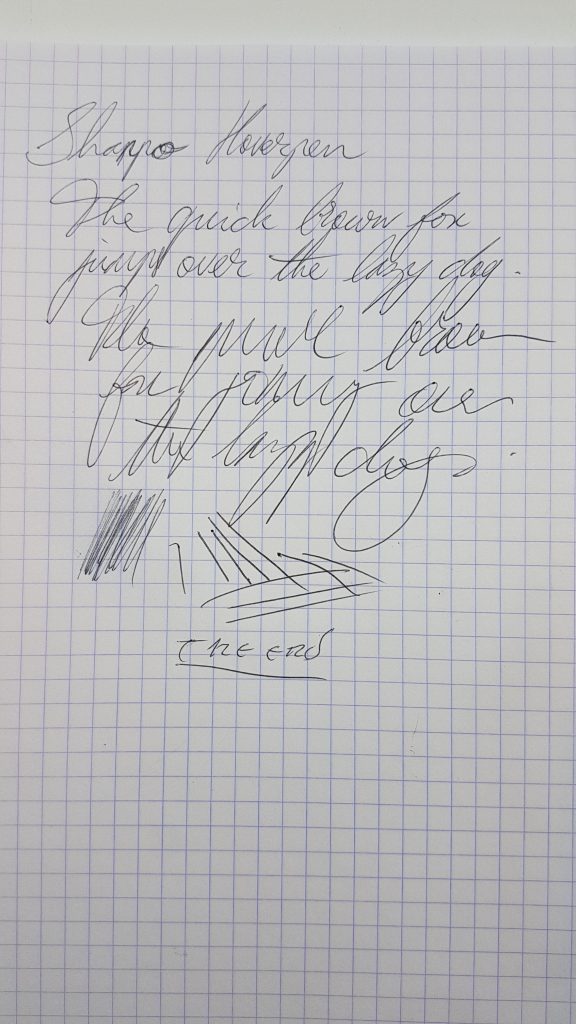 Shappo Hoverpen
The quick brown fox
jumps over the lazy dog.
The quick brown
fox jumps over
the lazy dog.
THE END